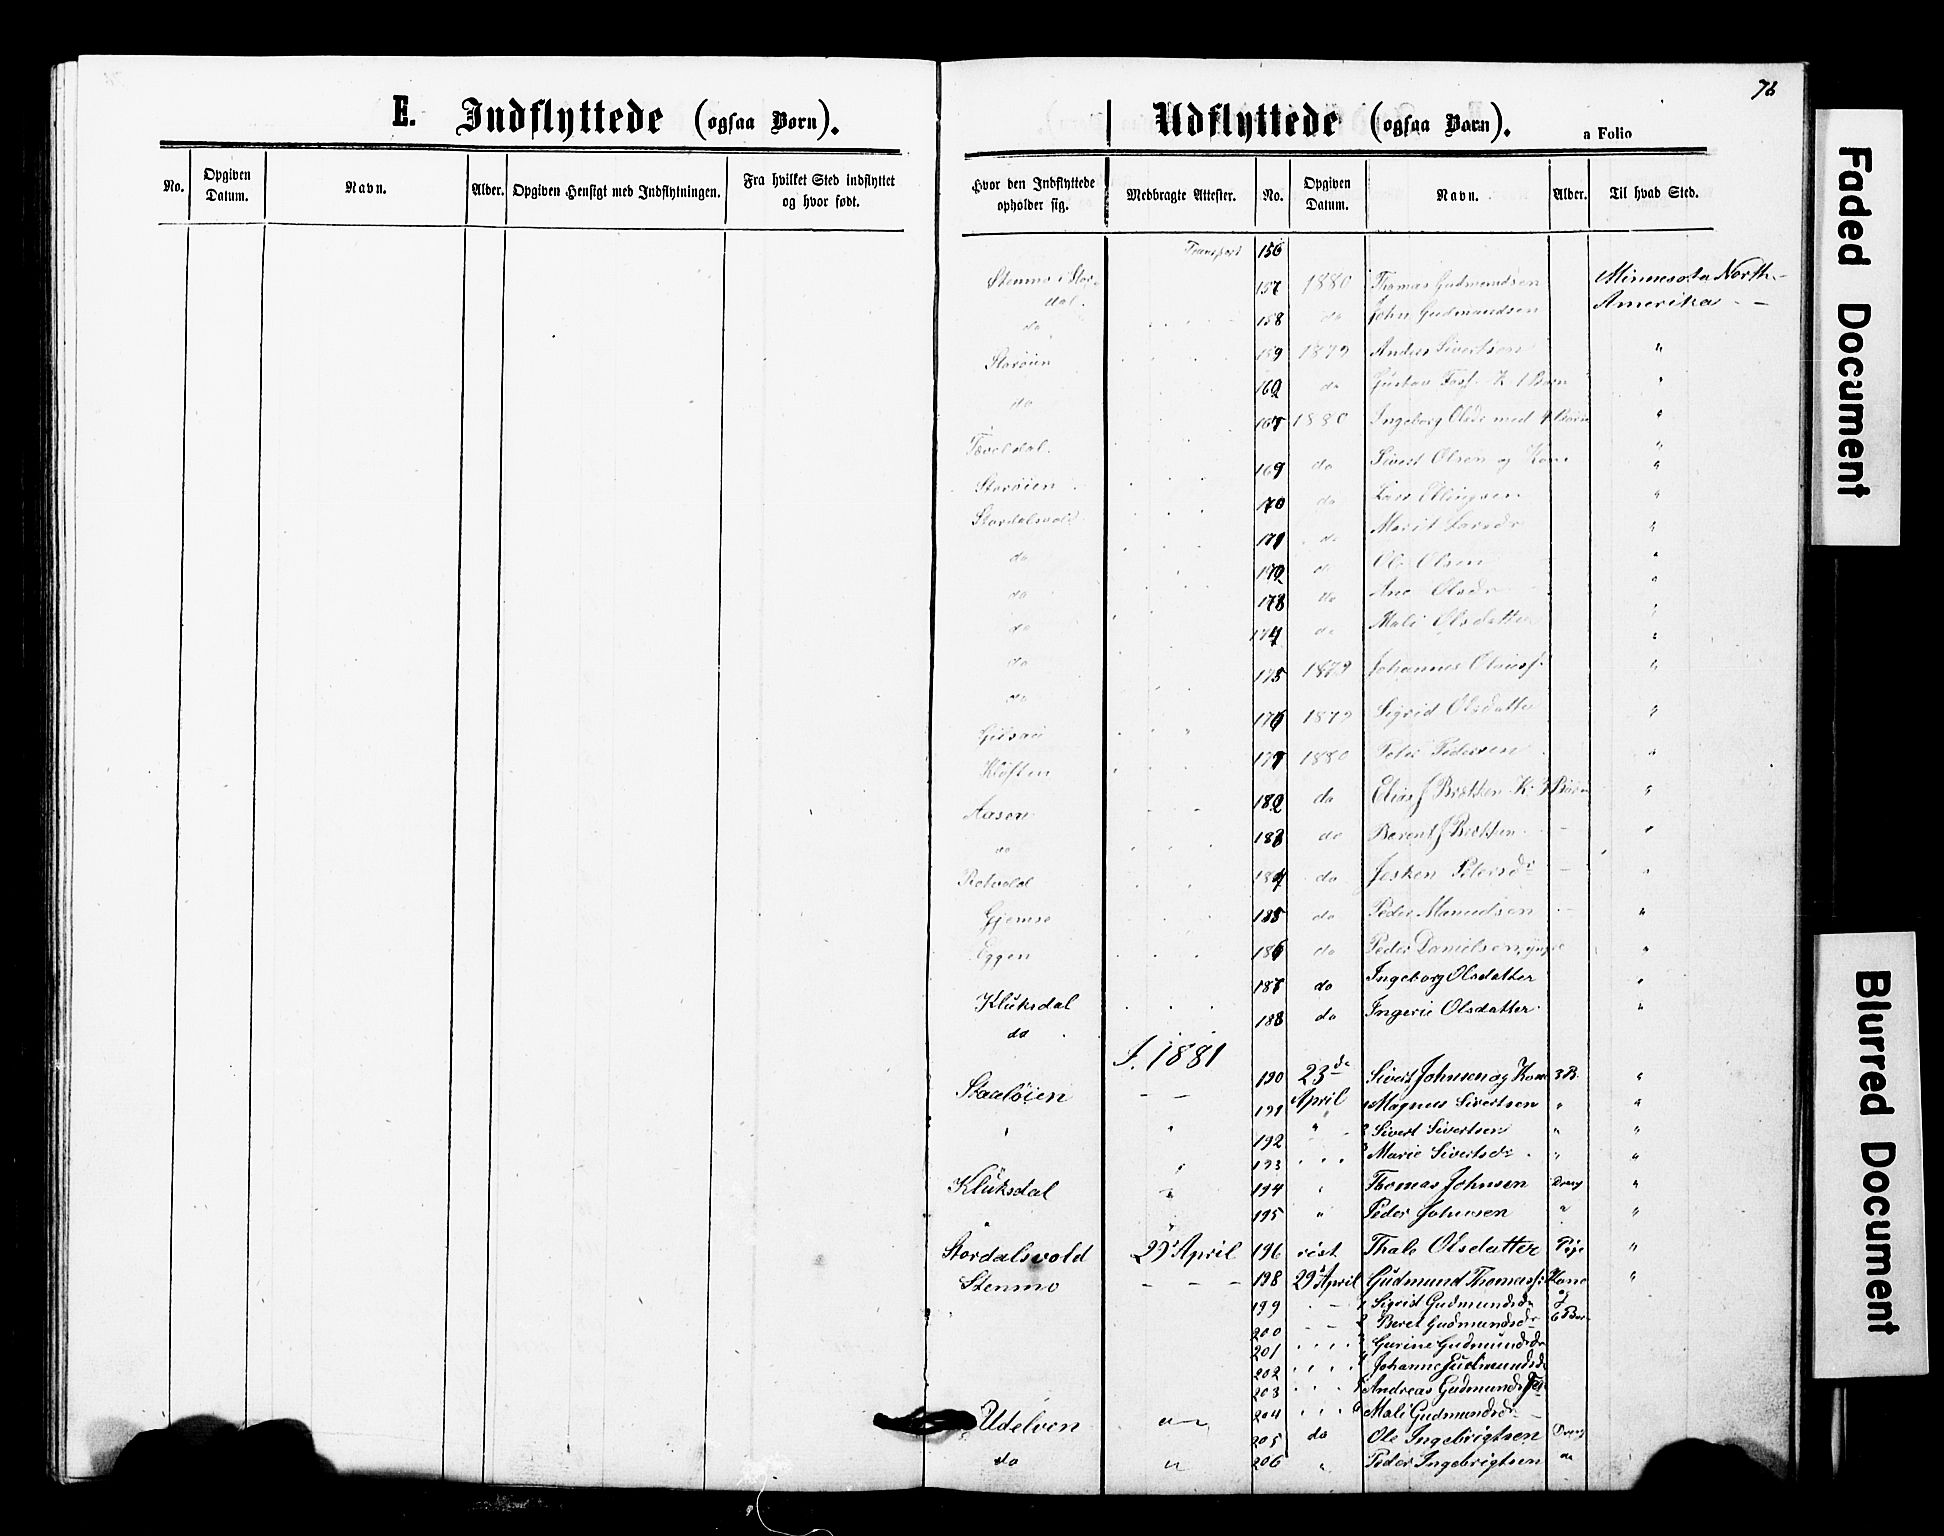 76
E. Indflyttede (ogsaa Børn).
Udflyttede (ogsaa Børn).
a Folio
No. Opgiven Datum. Navn. Alder. Opgiven Hensigt med Indflytningen. Fra hvilket Sted indflyttet og hvor født.
Hvor den Indflyttede opholder sig. Medbragte Attester. No. Opgiven Datum. Navn. Alder. Til hvad Sted.
Transport 156
Stenmo i Stordal. 157 1880 Thomas Gudmundsen Minnesota North-Amerika
do 158 do John Gudmundsen
Storøien 159 1879 Anders Sivertsen "
do 160 do Gustav K. 1 Barn "
Tæveldal 1880 Ingeborg Olsdr med 4 Børn "
Storøien 169 do Sivert Olsen og Kone "
Stordalsvold 170 do Lars Ellingsen "
do 171 do Marit Larsdr "
do 172 do Ole Olsen "
do 173 do Ane Olsdr "
do 174 do Mali Olsdatter "
do 175 1879 Johannes Olausf: "
176 1879 Sigrid Olsdatter "
Kløften 177 1880 Peder Pedersen "
Aasen 182 do Elias J Brækken K. 3 Børn "
do 183 do Berent J Brækken "
Rotvold 184 do Petersdr "
Gjemse 185 do Peder "
Eggen 186 do Peder Danielsen, yngre "
Kluksdal 187 do Ingeborg Olsdatter "
do 188 do Ingerie Olsdatter "
I. 1881
Staaløien 190 23de April Sivert Johnsen og Kone 3 B. "
191 " 1 Magnus Sivertsen " "
192 " 2 Sivert Sivertsen " "
193 3 Marie Sivertsdr " "
Kluksdal " 194 " Thomas Johnsen Dreng "
195 " Peder Johnsen " "
Stordalsvold 29 April 196 rest. Thale Olsdatter Pige "
Stenmo 198 29 April Gudmund Thomasf: Kone og 6 Børn "
199 1 Sigrid Gudmundsdr
200 2 Beret Gudmundsdr
201 3 Gurine Gudmundsdr
202 4 Johanne Gudmundsdr
203 5 Andreas Gudmunds
204 6 Mali Gudmundsdr
Udelven " 205 do Ole Ingebrigtsen Dreng
do " 206 " Peder Ingebrigtsen do
Faded Document
Blurred Document